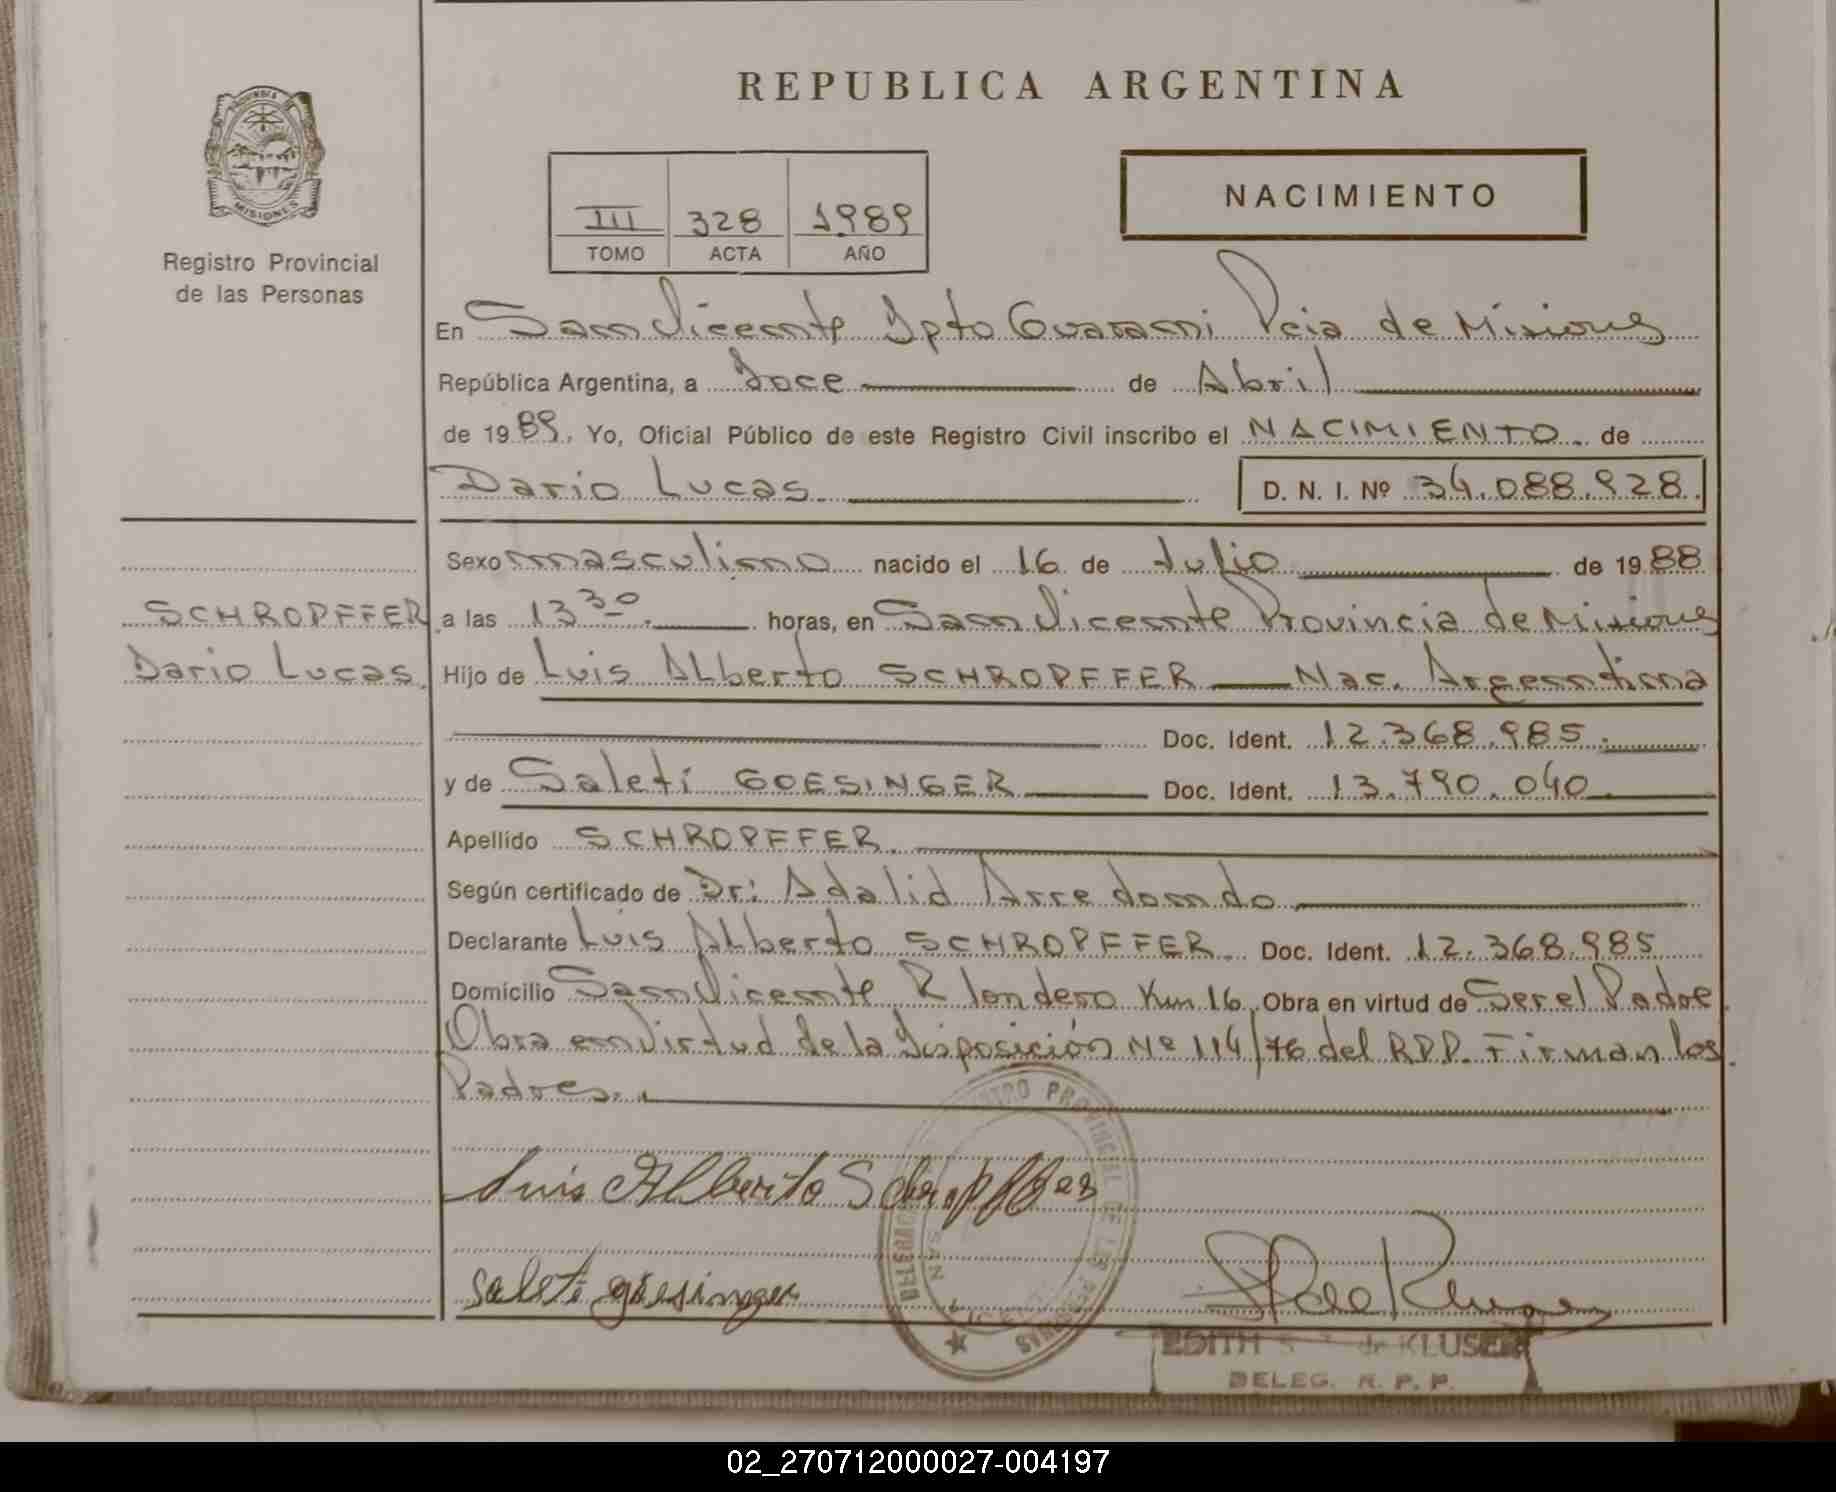 REPUBLICA ARGENTINA
PROVINCIA DE
MISIONES
Registro Provincial
de las Personas
III 328 1989
TOMO ACTA AÑO
NACIMIENTO
En San Vicente Dpto Guarani Pcia de Misiones
República Argentina, a Doce de Abril
de 1989, Yo, Oficial Público de este Registro Civil inscribo el NACIMIENTO de
Dario Lucas D. N. I. Nº 34.088.928.
Sexo masculino nacido el 16 de Julio de 1988
SCHROPFFER
Dario Lucas.
a las 13 30 horas, en San Vicente Provincia de Misiones
Hijo de Luis ALberto SCHROPFFER Nac. Argentina
Doc. Ident. 12.368.985.
y de Saleti GOESINGER Doc. Ident. 13.790.040.
Apellido SCHROPFFER.
Según certificado de Dr: Adalid Arredondo
Declarante Luis ALberto SCHROPFFER. Doc. Ident. 12.368.985
Domicilio San Vicente R londero Km 16. Obra en virtud de Ser el Padre.
Obra en Virtud de la Disposición Nº 114/76 del R.P.P. Firman los
Padres.
Luis Alberto Schropffer
Saleti goesinger
REGISTRO PROVINCIAL DE LAS PERSONAS
SAN VICENTE
EDITH S de KLUSER
DELEG. R. P. P.
02_270712000027-004197